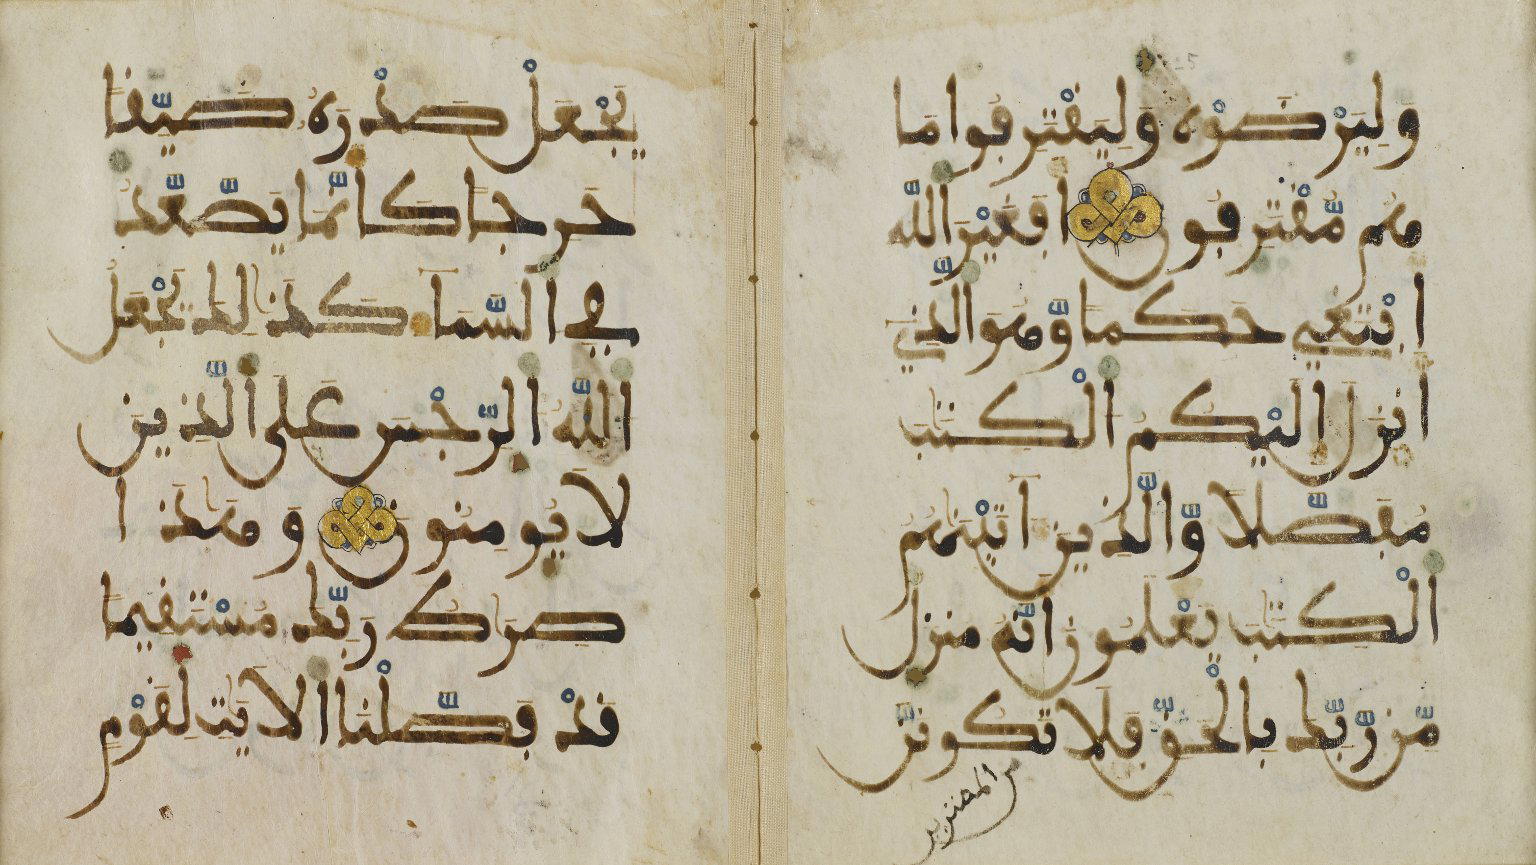 وَلِيَرْضَوْهُ وَلِيَقْتَرِفُوا مَا
هُم مُّقْتَرِفُونَ اَفَغَيْرَ اَللَّهِ
اَبْتَغِي حَكَمًا وَّهُوَ اَلَّذِي
أَنزَلَ إِلَيْكُمُ اُلْكِتَٰبَ
مُفَصَّلًا وَّالَّذِينَ ءَاتَيْنَٰهُمُ
اُلْكِتَٰبَ يَعْلَمُونَ أَنَّهُ مُنزَلٌ
مِّن رَّبِّكَ بِالْحَقِّ فَلَا تَكُونَنَّ
من الممترين
يَجْعَلْ صَدْرَهُ ضَيِّقًا
حَرِجًا كَأَنَّمَا يَصَّعَّدُ
فِي اِلسَّمَاءِ كَذَٰلِكَ يَجْعَلُ
اُللَّهُ اُلرِّجْسَ عَلَى اَلَّذِينَ
لَا يُومِنُونَ وَهَٰذَا
صِرَٰطُ رَبِّكَ مُسْتَقِيمًا
قَدْ فَصَّلْنَا اَلْأَيَٰتِ لِقَوْمٍ